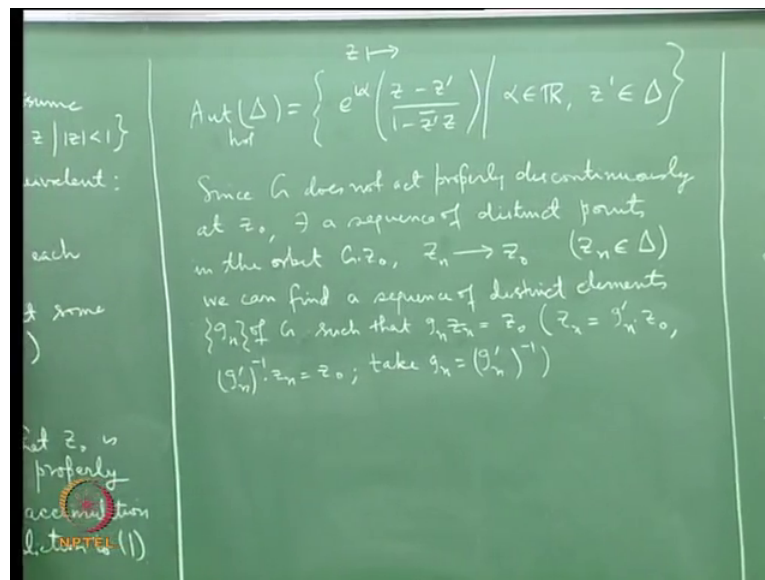 z ↦
sume
z | |z|<1}
uivalent:
each
t some
)
Let z₀ is
properly
accumulation
diction to (1)
Aut(Δ) = { e^{iα} ( (z - z') / (1 - z̄'z) ) | α ∈ ℝ, z' ∈ Δ }
hol
Since G does not act properly discontinuously
at z₀, ∃ a sequence of distinct points
in the orbit G.z₀, zₙ → z₀ (zₙ ∈ Δ)
we can find a sequence of distinct elements
{gₙ} of G such that gₙzₙ = z₀ (zₙ = g'ₙ.z₀,
(g'ₙ)⁻¹.zₙ = z₀; take gₙ = (g'ₙ)⁻¹)
NPTEL